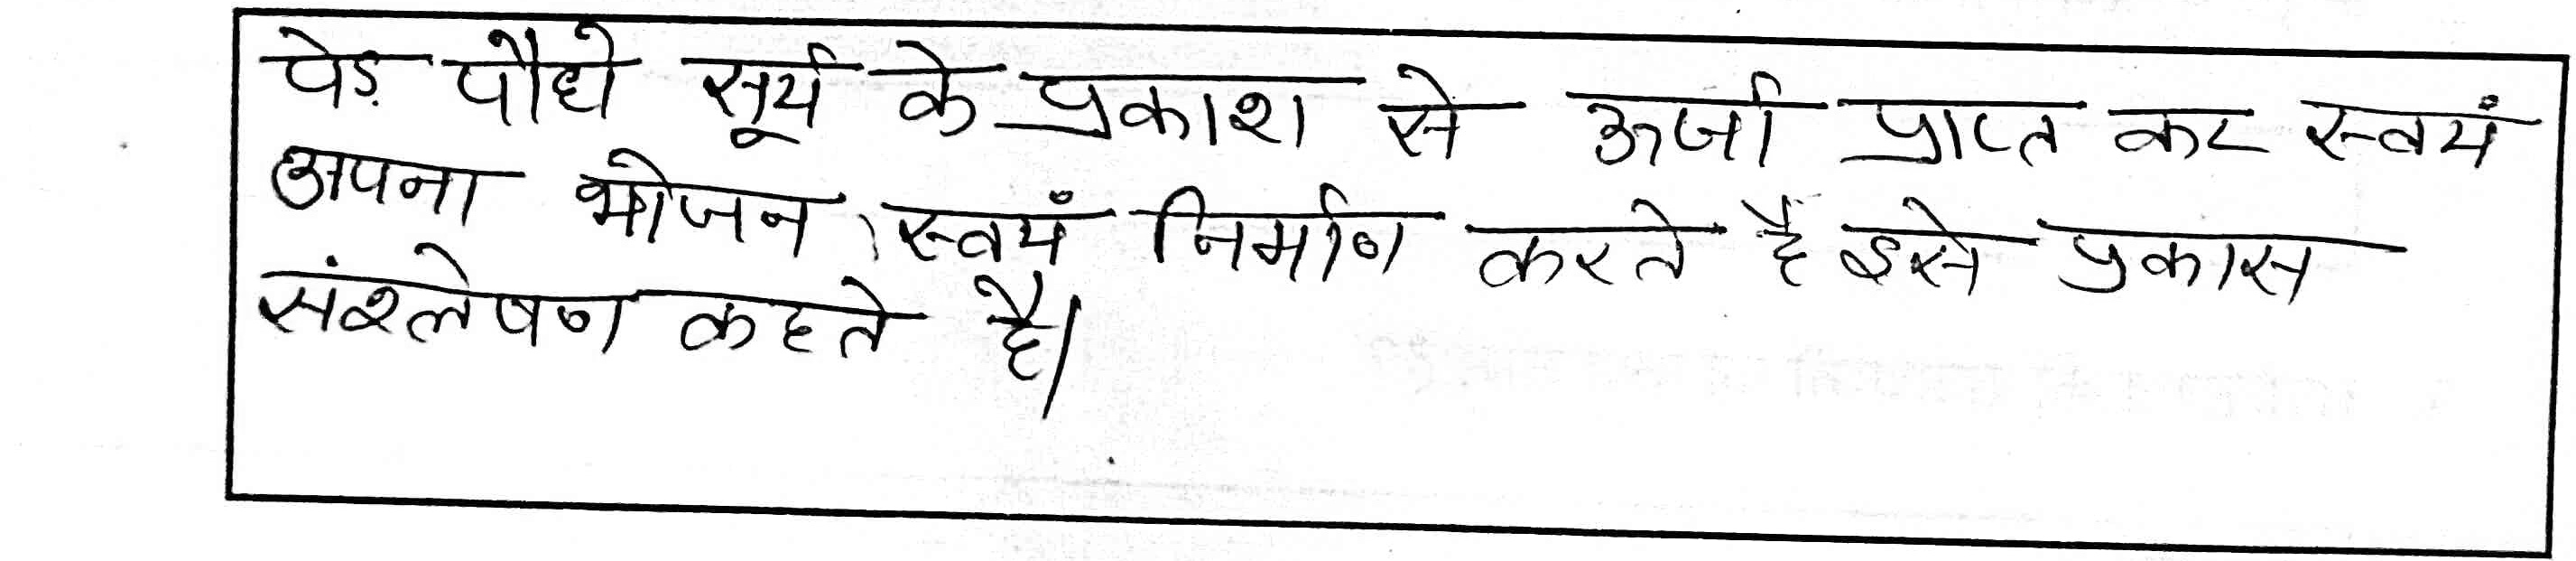 पेड़ पौधे सूर्य के प्रकाश से ऊर्जा प्राप्त कर स्वयं
अपना भोजन स्वयं निर्माण करते है इसे प्रकास
संश्लेषण कहते है।